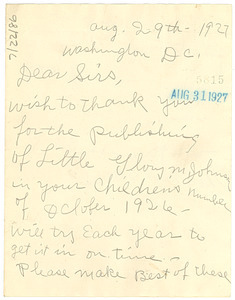 Aug. 29th - 1927
Washington D.C.
Dear Sirs,
5815
AUG 31 1927
wish to thank you
for the publishing
of Little Glory M Johnson
in your Childrens Number
of October 1926 -
will try Each year to
get it in on time -
Please make Best of these
7/22/86